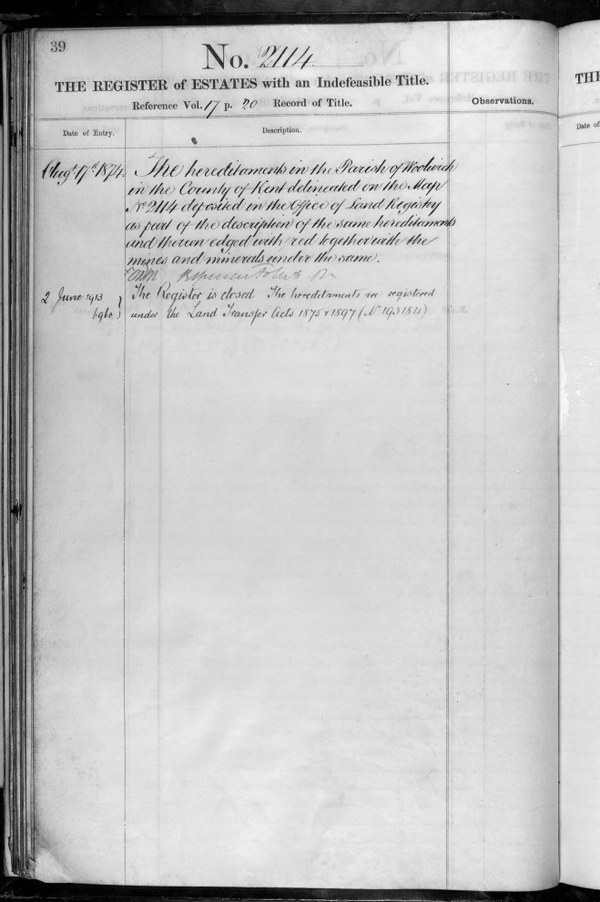 39
No. 2114
THE REGISTER of ESTATES with an Indefeasible Title.
Reference Vol. 17 p. 20 Record of Title.
Observations.
Date of Entry.
Description.
Augt 17th 1874.
The hereditaments in the Parish of Woolwich
in the County of Kent delineated on the Map
No 2114 deposited in the Office of Land Registry
as part of the description of the same hereditaments
and thereon edged with red together with the
mines and minerals under the same.
2 June 1913
The Register is closed The hereditaments are registered
under the Land Transfer Acts 1875 & 1897 (No 193184)
THE
Date of